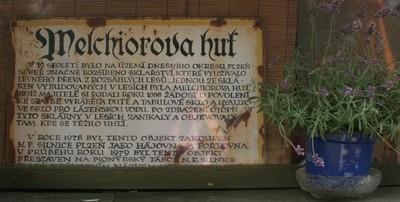 Melchiorova huť
V 19. STOLETÍ BYLO NA ÚZEMÍ DNEŠNÍHO OKRESU PLZEŇ
SEVER ZNAČNĚ ROZŠÍŘENO SKLÁŘSTVÍ, KTERÉ VYUŽÍVALO
LEVNÉHO DŘEVA Z ROZSÁHLÝCH LESŮ. JEDNOU ZE SKLÁ-
REN VYBUDOVANÝCH V LESÍCH BYLA MELCHIOROVA HUŤ.
JEJÍ MAJITELÉ SI PODALI ROKU 1838 ŽÁDOST O POVOLENÍ
KE STAVBĚ. VYRÁBĚLA DUTÉ A TABULOVÉ SKLO A
VE SKLO PRO LÁZEŇSKOU VODU. PO ZDRAŽENÍ OTOPU
TYTO SKLÁRNY V LESÍCH ZANIKALY A OBJEVOVALY
TAM, KDE SE TĚŽILO UHLÍ.
V ROCE 1978 BYL TENTO OBJEKT ZAKOUPEN
N.P. SILNICE PLZEŇ JAKO HÁJOVNA
V PRŮBĚHU ROKU 1979 BYL TENTO OBJEKT
PŘESTAVEN NA PIONÝRSKÝ TÁBOR N.P. SILNICE